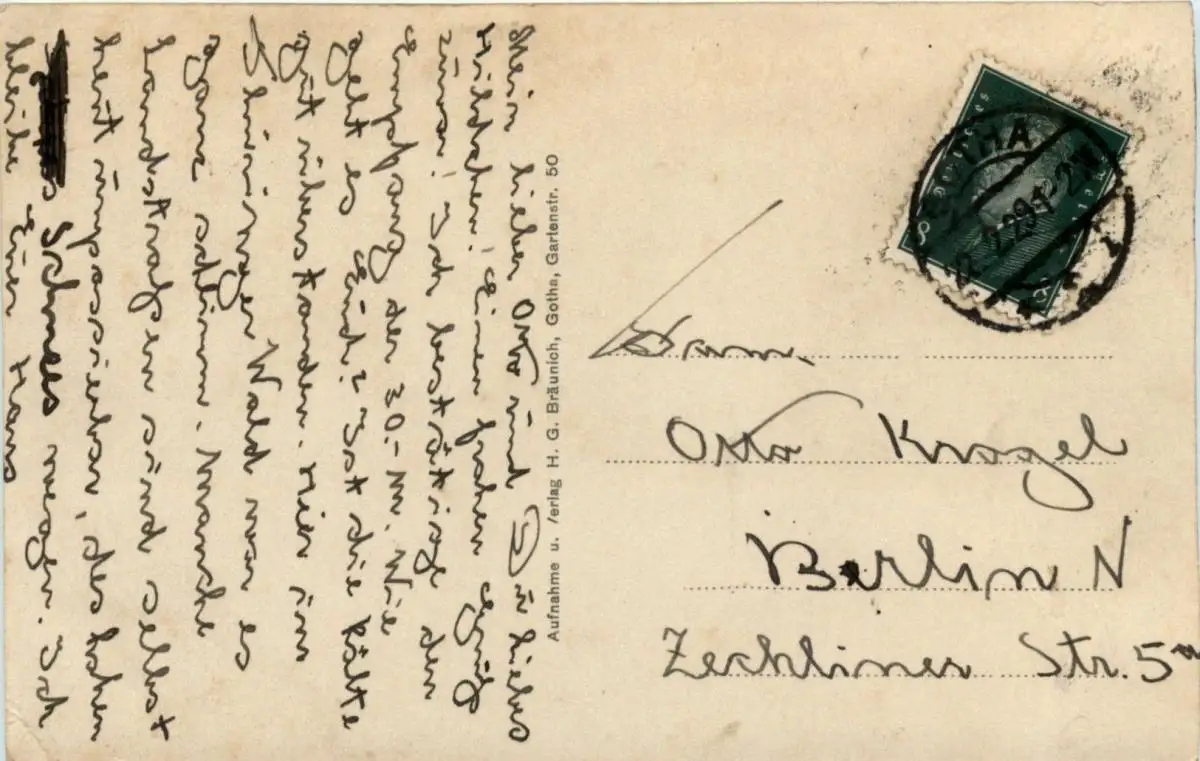 Mein lieber Otto und Du liebes
Hildchen! Einen frohen Gruß
zuvor! Ich bestätige den
Empfang der 30.- M. Wie
geht es Euch? Ist die Kälte
gut überstanden. Hier im
Thüringer Wald war es
ganz schlimm. Manche
Landstraßen sind selbst
heut unpassierbar, des hohen
Schnees wegen. Ich
bleibe Euer Hans
Aufnahme u. Verlag H. G. Bräunich, Gotha, Gartenstr. 50
GOTHA
Deutsches Reich
8 8
Fam.
Otto Krogel
Berlin N
Zechliner Str. 5